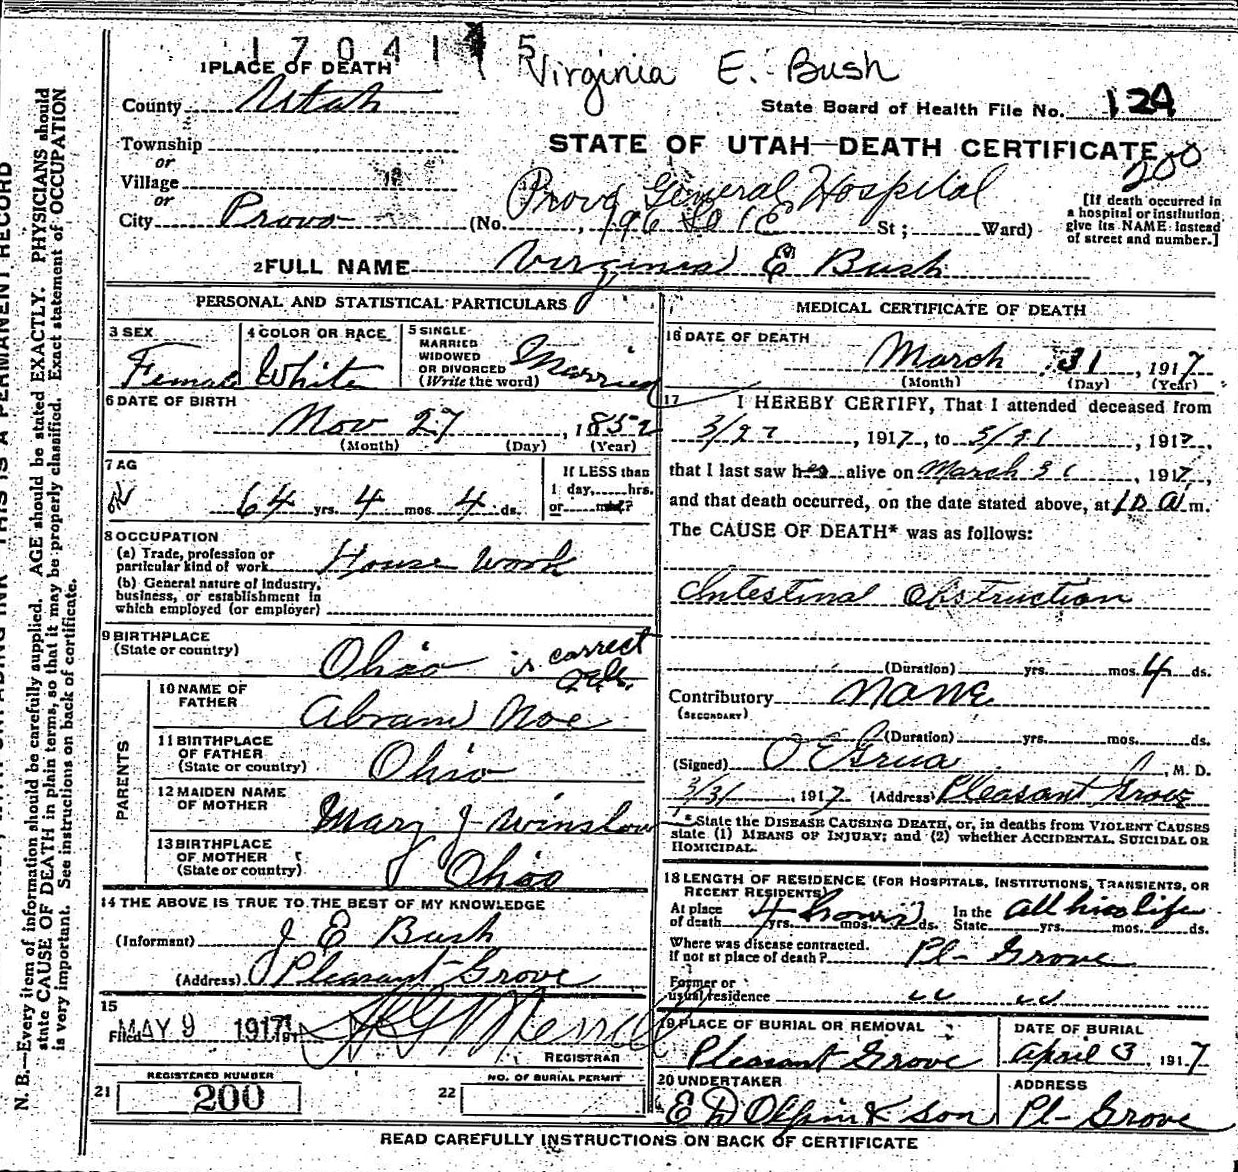 170414 5
Virginia E. Bush
1 PLACE OF DEATH
County Utah
State Board of Health File No. 124
Township
or
Village
or
City Provo
STATE OF UTAH—DEATH CERTIFICATE
200
Provo General Hospital
(No. 196 So 1 E St; Ward)
[If death occurred in
a hospital or institution
give its NAME instead
of street and number.]
2 FULL NAME Virginia E Bush
PERSONAL AND STATISTICAL PARTICULARS
3 SEX
Female
4 COLOR OR RACE
White
5 SINGLE
MARRIED
WIDOWED
OR DIVORCED
(Write the word)
Married
6 DATE OF BIRTH
Nov 27, 1852
(Month) (Day) (Year)
7 AG
64 yrs. 4 mos. 4 ds.
If LESS than
1 day, hrs.
or min?
8 OCCUPATION
(a) Trade, profession or
particular kind of work House Work
(b) General nature of industry,
business, or establishment in
which employed (or employer)
9 BIRTHPLACE
(State or country)
Ohio is correct
PARENTS
10 NAME OF
FATHER
Abram Noe
11 BIRTHPLACE
OF FATHER
(State or country)
Ohio
12 MAIDEN NAME
OF MOTHER
Mary J Winslow
13 BIRTHPLACE
OF MOTHER
(State or country)
Ohio
14 THE ABOVE IS TRUE TO THE BEST OF MY KNOWLEDGE
(Informant) J E Bush
(Address) Pleasant Grove
15
Filed MAY 9 1917
REGISTRAR
21 REGISTERED NUMBER
200
22 NO. OF BURIAL PERMIT
MEDICAL CERTIFICATE OF DEATH
16 DATE OF DEATH
March 31, 1917
(Month) (Day) (Year)
17 I HEREBY CERTIFY, That I attended deceased from
3/27, 1917, to 3/31, 1917,
that I last saw her alive on March 31, 1917,
and that death occurred, on the date stated above, at 10 a m.
The CAUSE OF DEATH* was as follows:
Intestinal Obstruction
(Duration) yrs. mos. 4 ds.
Contributory None
(SECONDARY)
(Duration) yrs. mos. ds.
(Signed) O E Grua, M. D.
3/31, 1917 (Address) Pleasant Grove
*State the DISEASE CAUSING DEATH, or, in deaths from VIOLENT CAUSES
state (1) MEANS OF INJURY; and (2) whether ACCIDENTAL, SUICIDAL OR
HOMICIDAL.
18 LENGTH OF RESIDENCE (FOR HOSPITALS, INSTITUTIONS, TRANSIENTS, OR
RECENT RESIDENTS)
At place
of death 4 hours yrs. mos. ds. In the
State all his life yrs. mos. ds.
Where was disease contracted.
if not at place of death? Pl- Grove
Former or
usual residence " "
19 PLACE OF BURIAL OR REMOVAL
Pleasant Grove
DATE OF BURIAL
April 3 1917
20 UNDERTAKER
E D Olpin & Son
ADDRESS
Pl- Grove
READ CAREFULLY INSTRUCTIONS ON BACK OF CERTIFICATE
N. B.—Every item of information should be carefully supplied. AGE should be stated EXACTLY. PHYSICIANS should
state CAUSE OF DEATH in plain terms, so that it may be properly classified. Exact statement of OCCUPATION
is very important. See instructions on back of certificate.
THIS IS A PERMANENT RECORD